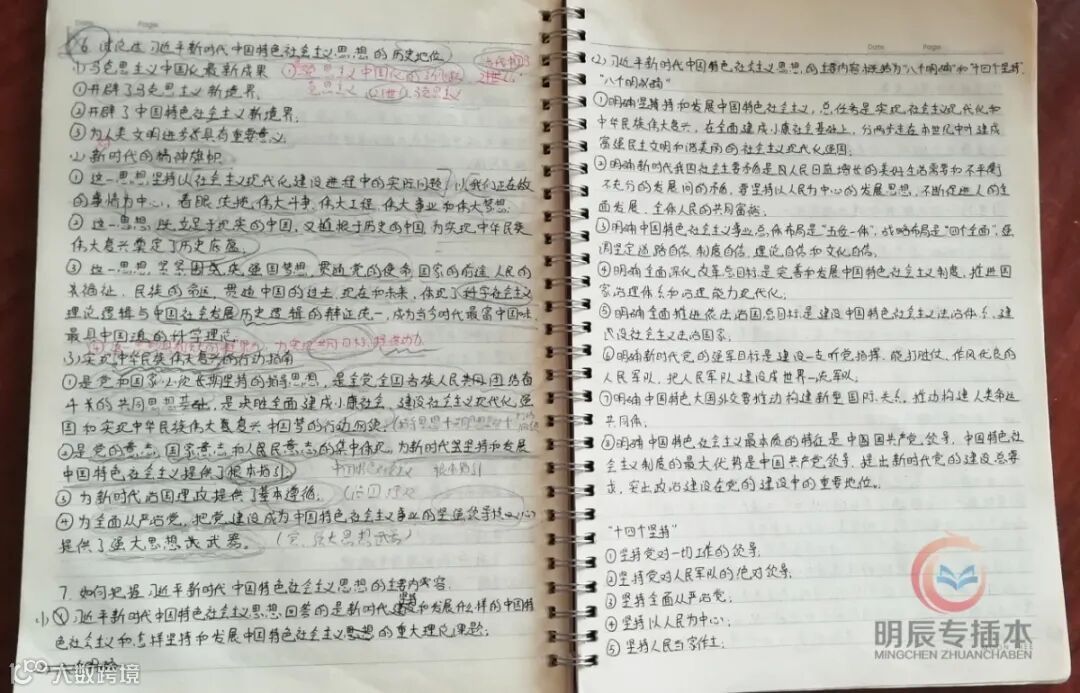 Date. Page.
6. 试论述习近平新时代中国特色社会主义思想的历史地位
(1) 马克思主义中国化最新成果 ①马克思主义中国化的
①开辟了马克思主义新境界. 21世纪马克思主义
②开辟了中国特色社会主义新境界.
③为人类文明进步具有重要意义.
(2) 新时代的精神旗帜.
① 这一思想坚持以社会主义现代化建设进程中的实际问题, 以我们正在做
的事情为中心, 着眼 伟大斗争, 伟大工程, 伟大事业和伟大梦想.
② 这一思想, 既立足于现实的中国, 又植根于历史的中国, 为实现中华民族
伟大复兴奠定了历史底蕴.
③ 这一思想, 强国梦想, 贯通党的使命 国家的前途 人民的
福祉, 民族的命运, 贯通中国的过去, 现在和未来, 体现了科学社会主义
理论逻辑与中国社会发展历史逻辑的辩正统一, 成为当今时代最富中国味
最具中国 的科学理论
(3) 实现中华民族伟大复兴的行动指南
① 是党和国家必须长期坚持的指导思想, 是全党全国各族人民共同团结奋
斗的共同思想基础, 是决胜全面建成小康社会、建设社会主义现代化强
国和实现中华民族伟大复兴中国梦的行动
②是党的意志, 国家意志和人民意志的集中体现, 为新时代坚持和发展
中国特色社会主义提供了根本指引. 根本指引
③ 为新时代治国理政提供了基本遵循. (治国理政
④ 为全面从严治党, 把党建设成为中国特色社会主义事业的坚强领导核心
提供了强大思想武器. (党, 强大思想武器)
7. 如何把握习近平新时代中国特色社会主义思想的主要内容.
(1) 习近平新时代中国特色社会主义思想, 回答的是新时代坚持和发展什么样的中国特
色社会主义和怎样坚持和发展中国特色社会主义的重大理论课题;
大数跨境
Date. Page.
(2) 习近平新时代中国特色社会主义思想, 的主要内容概括为"八个明确"和"十四个坚持".
"八个明确"
①明确坚持和发展中国特色社会主义, 总任务是实现社会主义现代化和
中华民族伟大复兴, 在全面建成小康社会基础上, 分两步走在本世纪中叶建成
富强民主文明和谐美丽的社会主义现代化强国;
②明确新时代我国社会主要矛盾是人民日益增长的美好生活需要和不平衡
不充分的发展间的矛盾, 要坚持以人民为中心的发展思想, 不断促进人的全
面发展, 全体人民的共同富裕;
③明确中国特色社会主义事业总体布局是"五位一体", 战略布局是"四个全面", 强
调坚定道路自信, 制度自信, 理论自信和文化自信;
④明确全面深化改革总目标是完善和发展中国特色社会主义制度, 推进国
家治理体系和治理能力现代化;
⑤ 明确全面推进依法治国总目标是建设中国特色社会主义法治体系, 建
设社会主义法治国家;
⑥明确新时代党的强军目标是建设一支听党指挥, 能打胜仗, 作风优良的
人民军队, 把人民军队建设成世界一流军队;
⑦明确中国特色大国外交要推动构建新型国际关系, 推动构建人类命运
共同体;
⑧明确中国特色社会主义最本质的特征是中国共产党领导, 中国特色社
会主义制度的最大优势是中国共产党领导, 提出新时代党的建设总要
求, 突出政治建设在党的建设中的重要地位。
"十四个坚持"
①坚持党对一切工作的领导;
②坚持党对人民军队的绝对领导;
③ 坚持全面从严治党;
④ 坚持以人民为中心;
⑤ 坚持人民当家作主;
明辰专插本
MINGCHEN ZHUANCHABEN